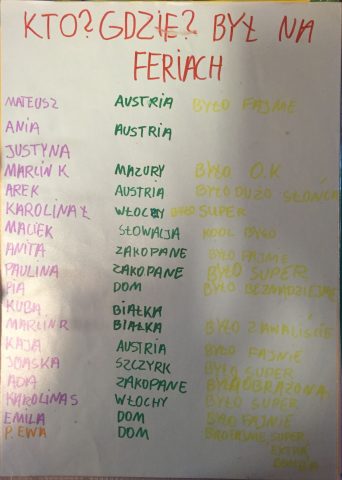 KTO? GDZIE? BYŁ NA
FERIACH
MATEUSZ AUSTRIA BYŁO FAJME
ANIA AUSTRIA
JUSTYNA
MARCIN K MAZURY BYŁO O.K
AREK AUSTRIA BYŁO DUŻO SŁOŃCA
KAROLINA Ł WŁOCHY BYŁO SUPER
MACIEK SŁOWACJA KOOL BYŁO
ANITA ZAKOPANE BYŁO FAJME
PAULINA ZAKOPANE BYŁO SUPER
PIA DOM BYŁO BEZNADZIEJNIE
KUBA BIAŁKA
MARCIN R BIAŁKA BYŁO ZAWALIŚCIE
KAJA AUSTRIA BYŁO FAJNIE
JOAŚKA SZCZYRK BYŁO SUPER
ADA ZAKOPANE BYŁA OBRAŻONA
KAROLINA S WŁOCHY BYŁO SUPER
EMILA DOM BYŁO FAJNIE
P. EWA DOM SUPER,
EXTRA